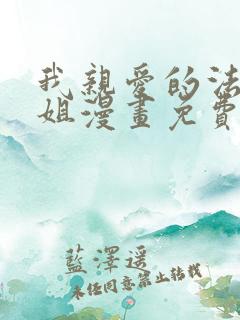 我親愛的法
姐漫畫免費
藍澤遥
未经同意禁止转载